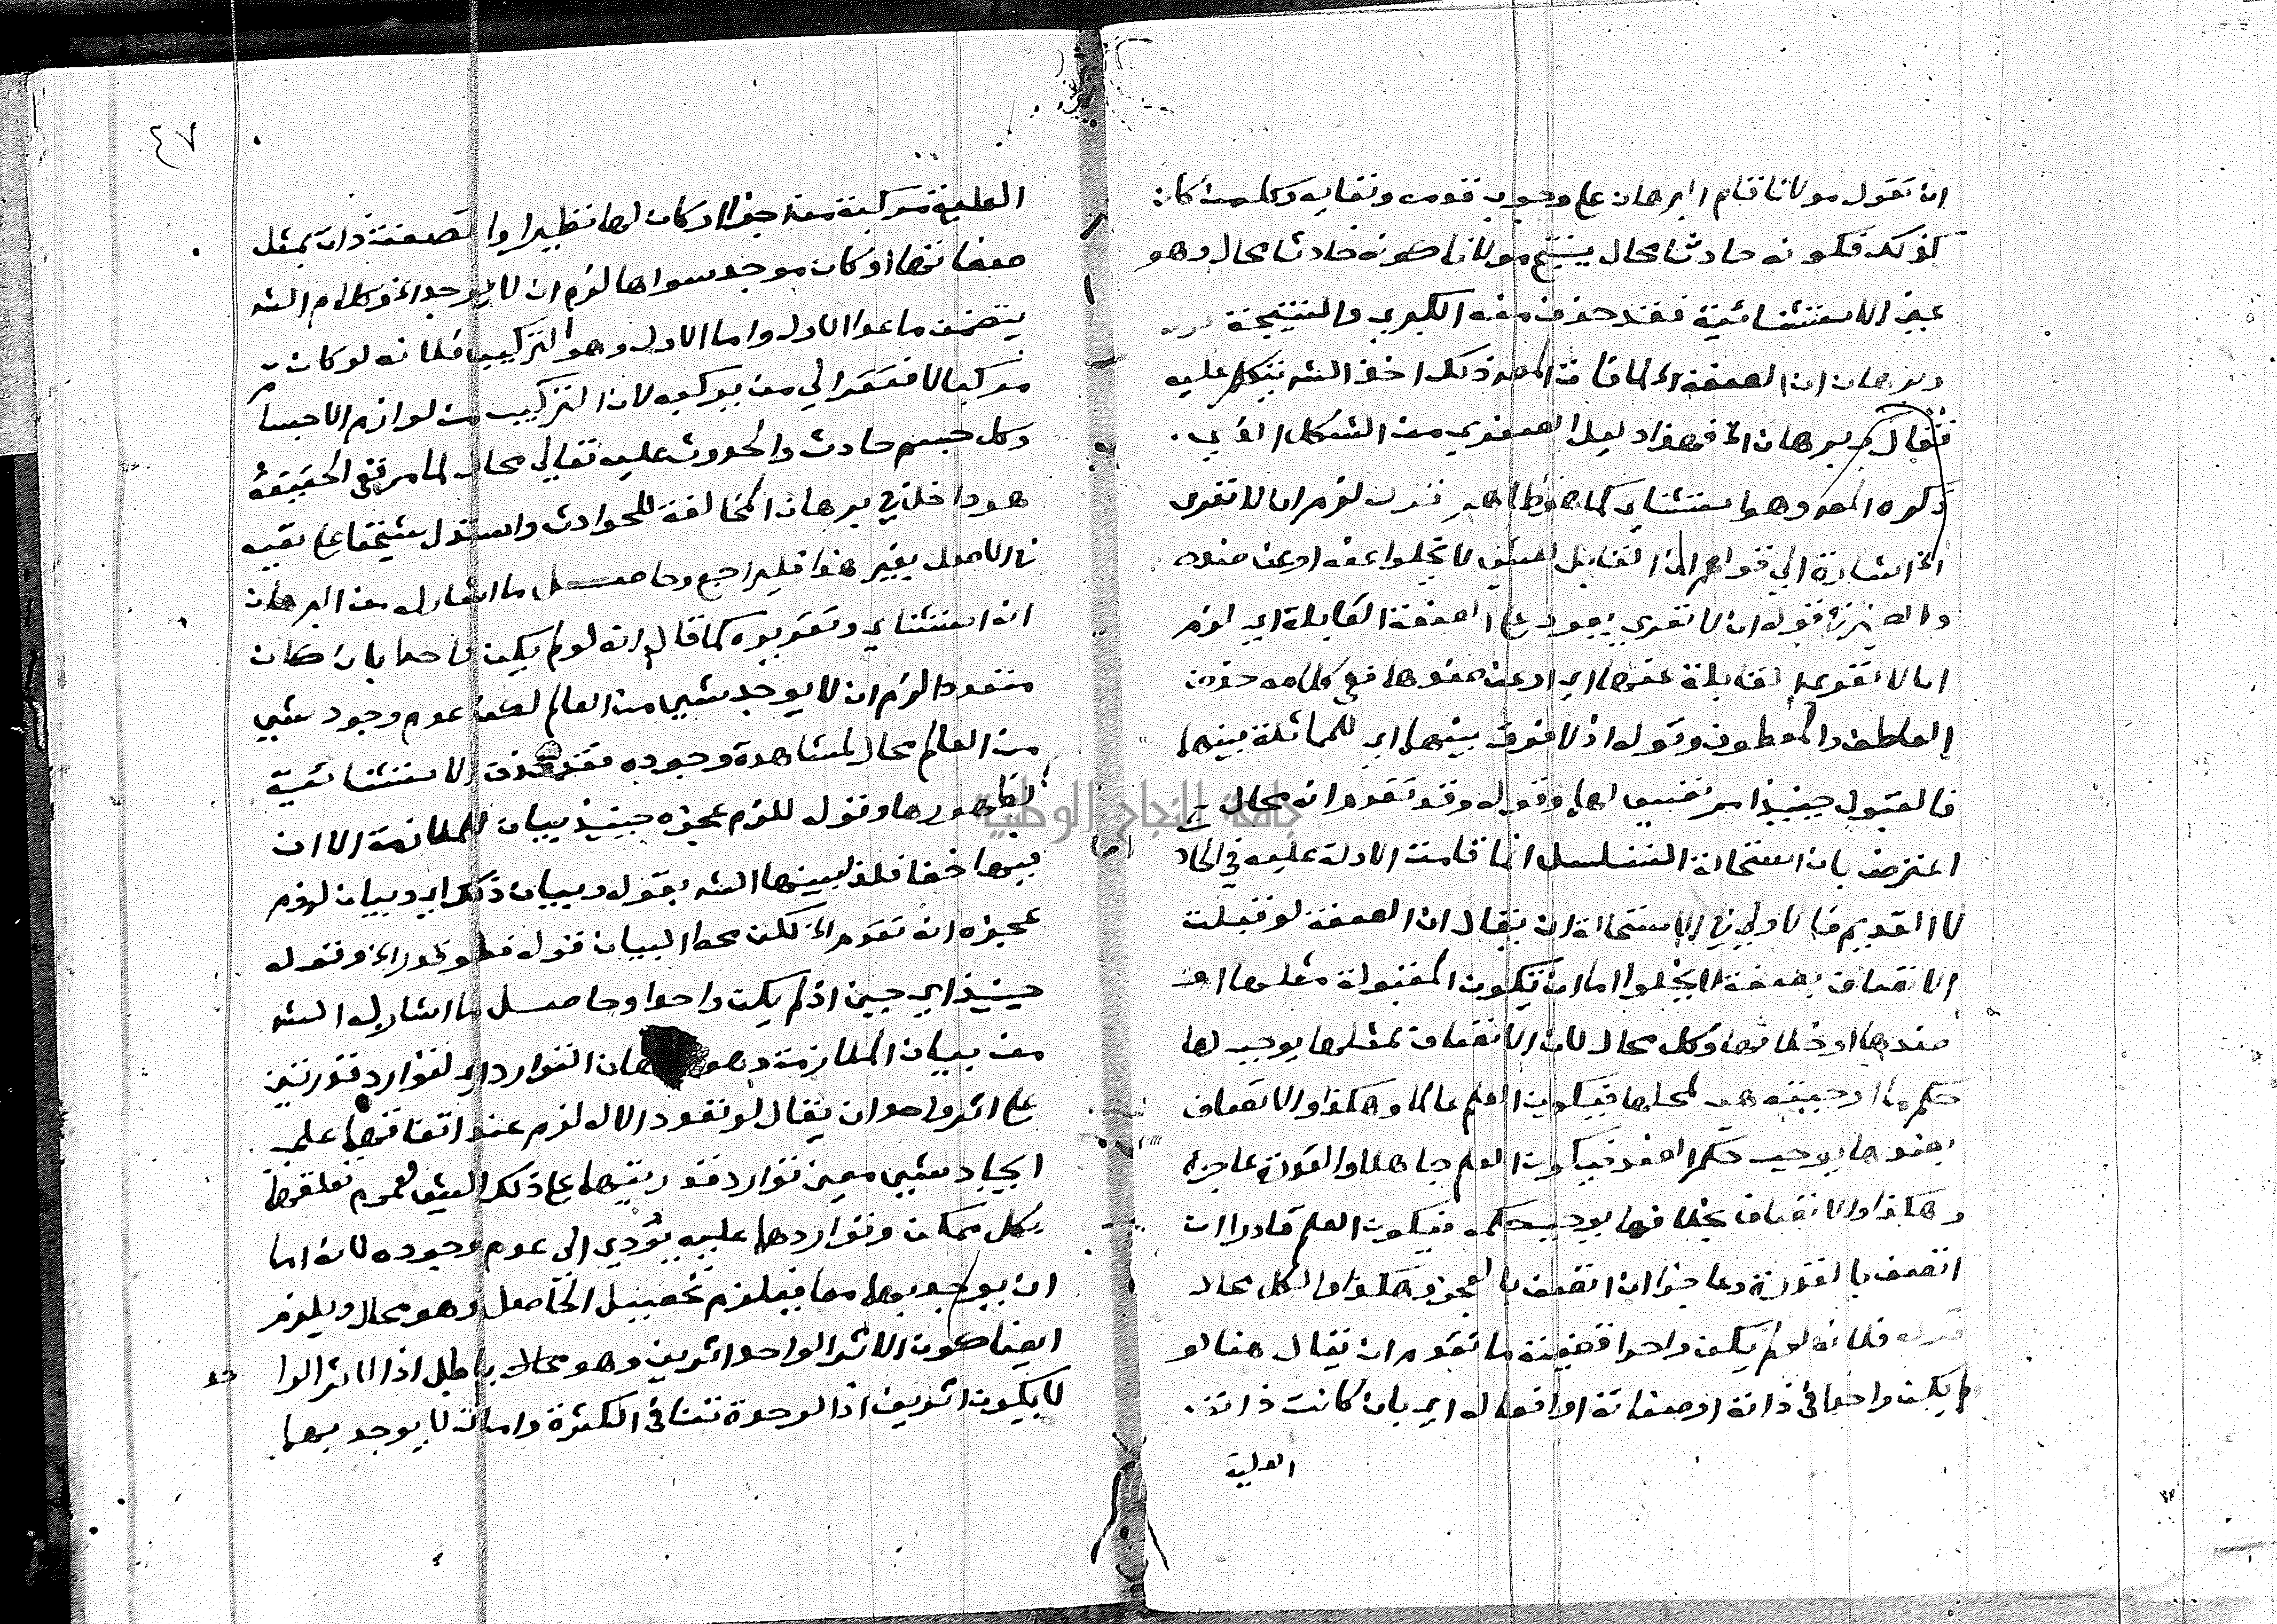 ان تقول مولانا قام البرهان على وجوب قدمه وبقايه وكل من كان
كذلك فكونه حادثا محال ينتج مولانا كونه حادثا محال وهو
عين الاستثنائية فقد حذف منه الكبري والنتيجة قوله
وبرهان ان الصفة الخ لما فات المص ذلك اخذ الشه يتكلم عليه
فقال وبرهان الخ فهذا دليل الصغري من الشكل الذي
ذكره المص وهو استثناي كما هو ظاهر قوله لزم ان لا تعرى
الخ اشارة الي قولهم ان القابل للشي لا يخلوا عنه او عن ضده
والضمير في قوله ان لا تعري يعود على الصفة القابلة اي لزم
ان لا تعري القابلة عنها اي او عن ضدها ففي كلامه حذف
العاطف والمعطوف وقوله اذ لا فرق بينهما اي للمماثلة بينهما
فالقبول حينيذ امر نفسي لها وقوله وقد تقدم انه محال
اعترض بان استحالة التسلسل انما قامت الادلة عليه في الحاد
لا القديم فالاولي في الاستحالة ان يقال ان الصفة لو قبلت
الاتصاف بصفة لا يخلوا اما ان تكون المقبولة مثلها او
ضدها او خلافها وكل محال لان الاتصاف بمثلها يوجب لها
حكم ما اوجبته هي لمحلها فيكون العلم عالما وهكذا والاتصاف
بضدها يوجب حكم الضد فيكون العلم جاهلا والقدرة عاجزة
وهكذا والاتصاف بخلافها يوجب حكمه فيكون العلم قادرا ان
اتصف بالقدرة وعاجزا ان اتصف بالعجز وهكذا والكل محال
قوله فلانه لو لم يكن واحدا قضية ما تقدم ان يقال هنا لو
لم يكن واحدا في ذاته او صفاته او افعاله اي بان كانت ذاته
العلية
٤٧
العلية مركبة من اجزا او كان لها نظيرا واتصفت ذات بمثل
صفاتها او كان موجد سواها لزم ان لا يوجد الخ وكلام الشه
يتضمن ما عدا الاول واما الاول وهو التركيب فلانه لو كانت
مركبا لافتقر الي من يركبه لان التركيب من لوازم الاجسام
وكل جسم حادث والحدوث عليه تعالي محال لما مر ففي الحقيقة
هو داخل في برهان المخالفة للحوادث واستدل شيخنا على نفيه
في الاصل بغير هذا فليراجع وحاصل ما اشار له من البرهان
انه استثناي وتقريره كما قال انه لو لم يكن واحدا بان كان
متعددا لزم ان لا يوجد شي من العالم لكن عدم وجود شي
من العالم محال لمشاهدة وجوده فقد حذف الاستثنائية
لظهورها وقوله للزم عجزه حينيذ بيان للملازمة الا ان
فيها خفا فلذا بينها الشه بقوله وبيان ذلك اي وبيان لزوم
عجزه انه تقدم الخ لكن محط البيان قوله فلو قدر الخ وقوله
حينيذ اي حين اذ لم يكن واحدا وحاصل ما اشار له الشه
من بيان الملازمة وهو برهان التوارد اي لتوارد قدرتين
على اثر واحد ان يقال لو تعدد الاله لزم عند اتفاقهما على
ايجاد شي معين توارد قدرتيهما على ذلك الشي لعموم تعلقهما
بكل ممكن وتواردهما عليه يؤدي الي عدم وجوده لانه اما
ان يوجد بهما معا فيلزم تحصيل الحاصل وهو محال ويلزم
ايضا كون الاثر الواحد اثرين وهو محال باطل اذ الاثر الوا
حد
لا يكون اثرين اذ الوحدة تنافي الكثرة واما ان لا يوجد بهما
جامعة النجاح الوطنية